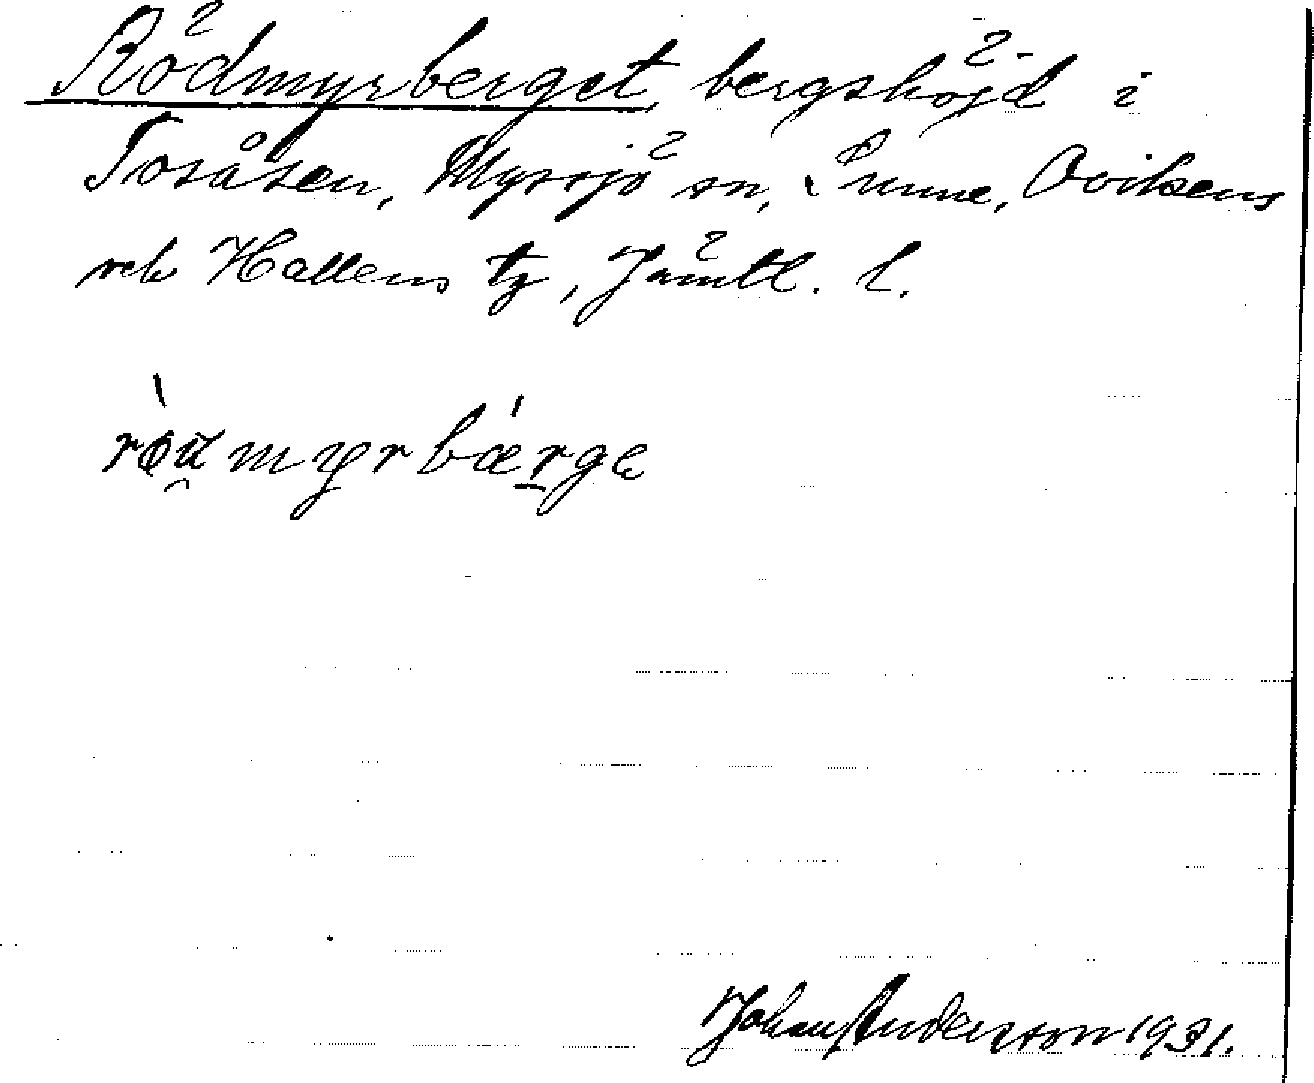 Rödmyrberget, bergshöjd i
Tosåsen, Myssjö sn, Sunne, Ovikens
och Hallens tg, Jämtl. l.
ròu̯myrbǽrge
Johan Anderson 1931.